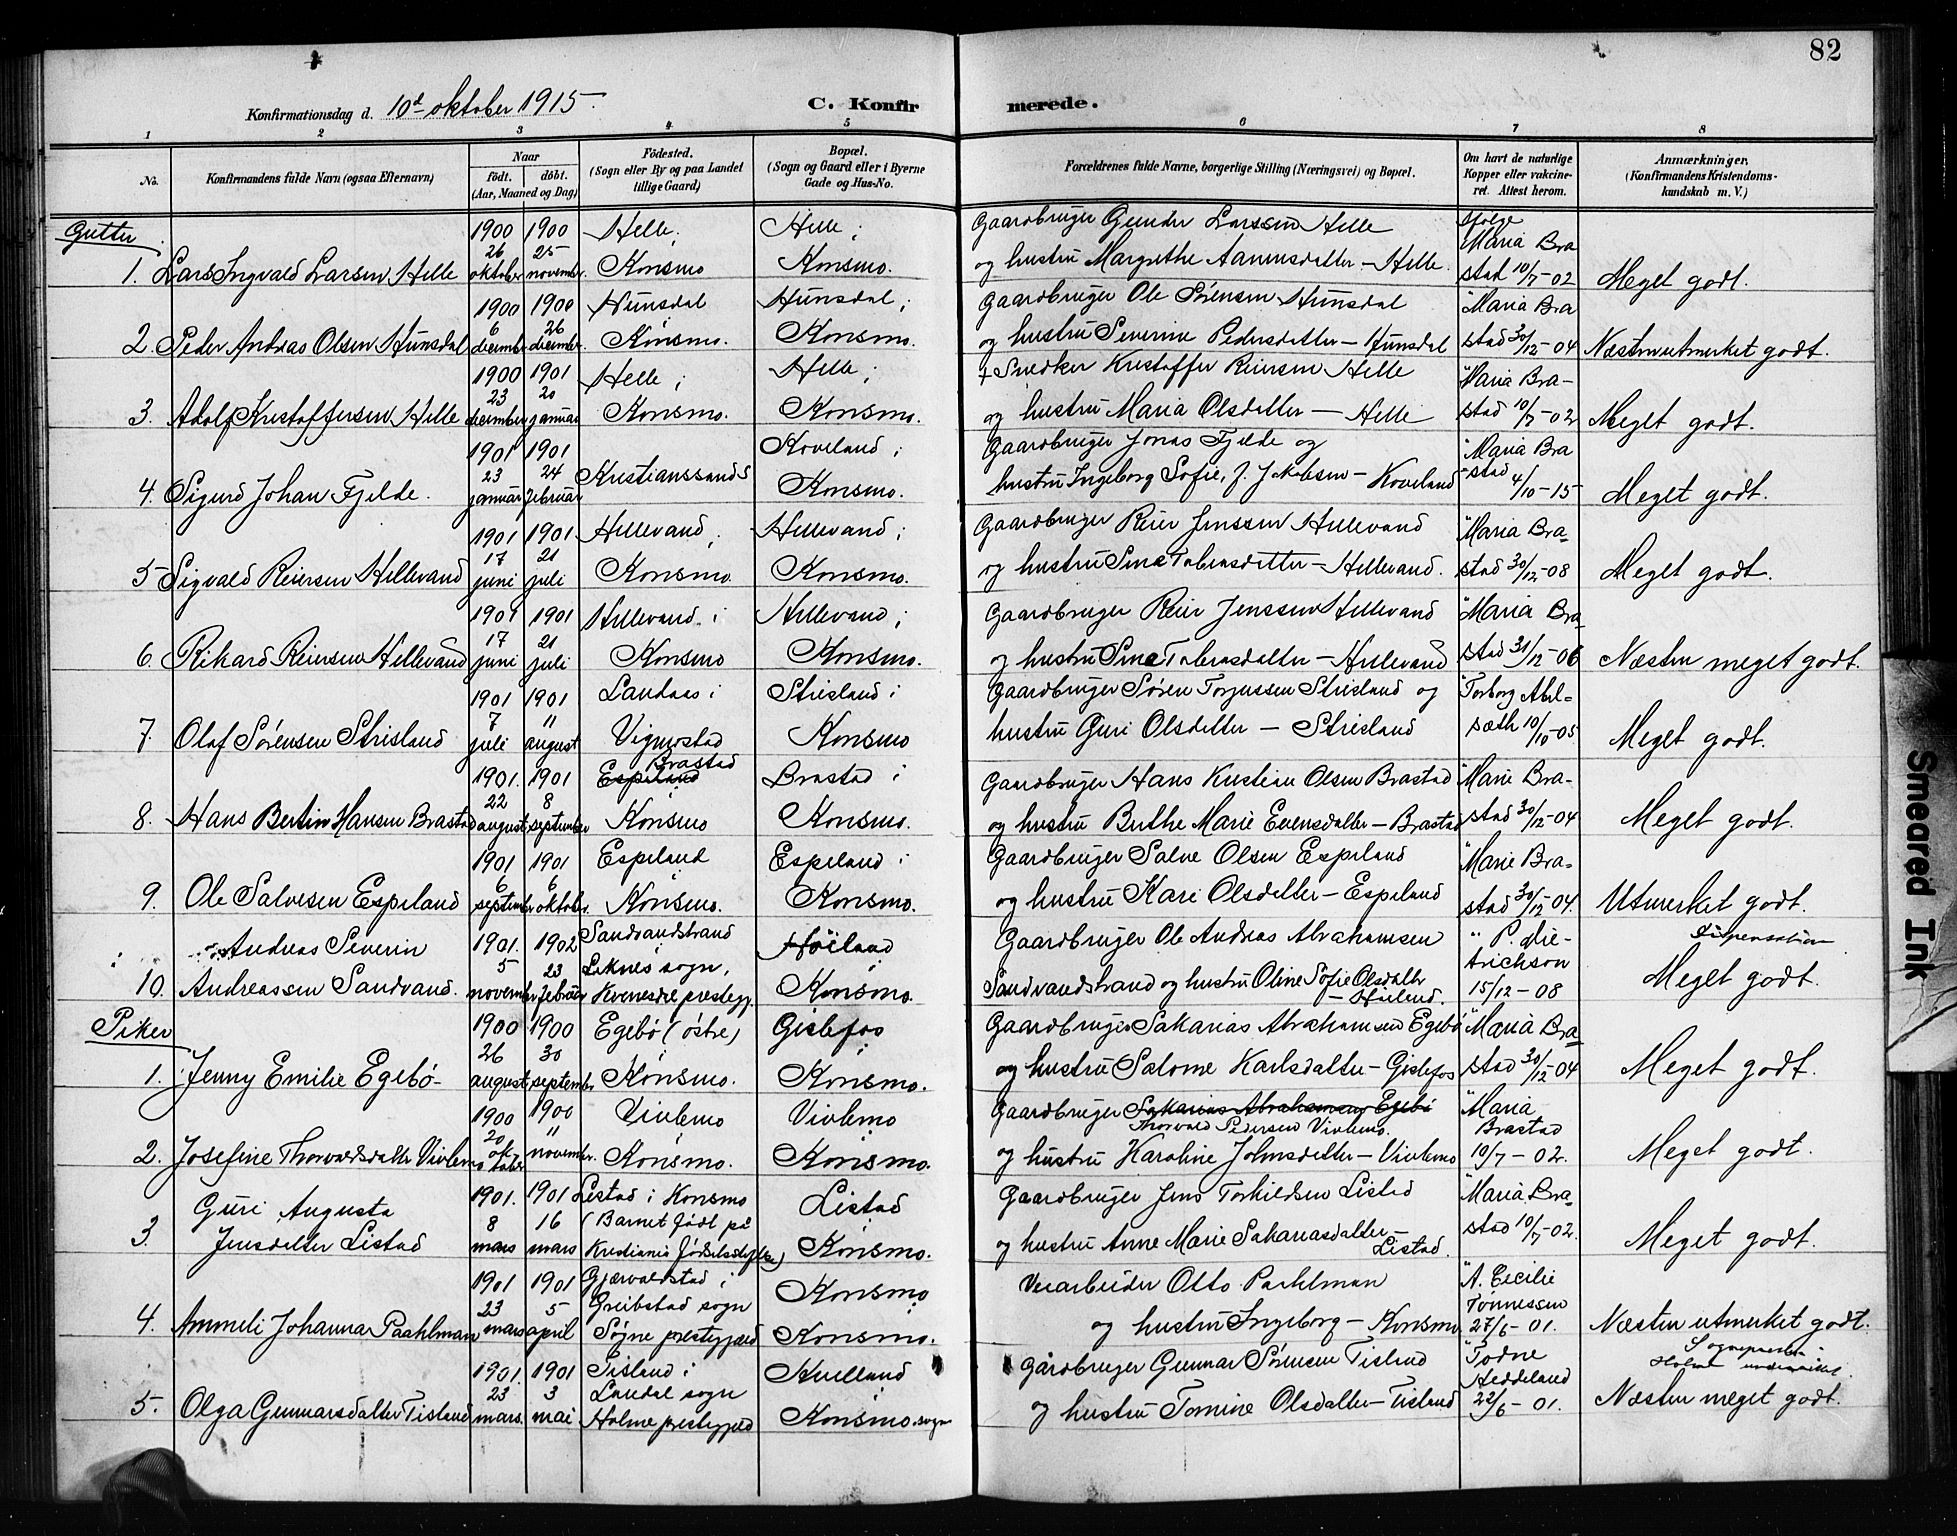 82
Konfirmationsdag d. 10de oktober 1915.
C. Konfirmerede.
1 2 3 4 5 6 7 8
No.
Konfirmandens fulde Navn (ogsaa Efternavn)
Naar
födt. döbt.
(Aar, Maaned og Dag)
Födested.
(Sogn eller By og paa Landet
tillige Gaard)
Bopæl.
(Sogn og Gaard eller i Byerne
Gade og Hus-No.
Forældrenes fulde Navne, borgerlige Stilling (Næringsvei) og Bopæl.
Om havt de naturlige
Kopper eller vakcine-
ret. Attest herom.
Anmærkninger.
(Konfirmandens Kristendoms-
kundskab m. V.)
Gutter
1900 1900 Helle; Helle; Gaardbruger Gunder Larssen Helle Ifølge
26 25 Maria Bra
1. Lars Ingvald Larsen Helle oktober november. Konsmo Konsmo. og hustru Margrethe Aanensdatter - Helle. stad 10/7-02 Meget godt.
1900 1900 Hunsdal Hunsdal; Gaardbruger Ole Sørensen Hunsdal " Maria Bra
6 26
2. Peder Andreas Olsen Hunsdal december december. Konsmo. Konsmo. og hustru Severine Pedersdatter - Hunsdal stad 30/12-04 Næsten utmerket godt.
1900 1901 Helle; Helle; + Snedker Kristoffer Reiersen Helle " Maria Bra-
23 20
3. Adolf Kristoffersen Helle december januar Konsmo. Konsmo. og hustru Maria Olsdatter - Helle stad 10/7-02 Meget godt.
1901 1901 Koveland; Gaardbruger Jonas Fjelde og " Maria Bra
23 24 Kristianssand S
4. Sigurd Johan Fjelde. januar februar Konsmo. hustru Ingeborg Sofie, f. Jakobsen - Koveland -stad 4/10-15 Meget godt.
1901 1901 Hellevand; Hellevand; Gaardbruger Reier Jenssen Hellevand " Maria Bra-
17 21
5 Sigvald Reiersen Hellevand juni juli Konsmo. Konsmo. og hustru Sine Tobiasdatter - Hellevand. stad 30/12-08 Meget godt.
1901 1901 Hellevand i Hellevand; Gaardbruger Reier Jenssen Hellevand " Maria Bra-
17 21
6. Rikard Reiersen Hellevand juni juli Konsmo Konsmo. og hustru Sine Tobiasdatter - Hellevand stad 31/12-06 Næsten meget godt.
1901 1901 Landaas i Strisland i Gaardbruger Søren Torjussen Strisland og " Torborg Abel-
7 11
7 Olaf Sørensen Strisland juli august Vigmostad Konsmo hustru Guri Olsdatter - Strisland sæth 10/10-05. Meget godt.
Brastad
1901. 1901 Espeland Brastad i Gaardbruger Hans Kristian Olsen Brastad " Marie Bra-
22 8
8. Hans Bertin Hansen Brastad august september Konsmo Konsmo. og hustru Berthe Marie Evensdatter - Brastad stad 30/12-04 Meget godt.
1901 1901 Espeland Espeland i Gaardbruger Salve Olsen Espeland " Marie Bra-
6 6
9. Ole Salvesen Espeland september oktober. Konsmo. Konsmo. og hustru Kari Olsdatter - Espeland stad 30/12-04. Utmerket godt.
Andreas Severin 1901. 1902 Sandvandstrand Høiland Gaardbruger Ole Andreas Abrahamsen " P. Die- Dispensation
5 23 Liknes sogn, trichson
10. Andreassen Sandvand. november februar Kvinesdal prestegj. Konsmo. Sandvandstrand og hustru Oline Sofie Olsdatter 15/12-08 Meget godt.
- Høiland.
Piker
1900 1900 Egebö (östre) Gislefos Gaardbruger Sakarias Abrahamsen Egebö " Maria Bra
26 30
1. Jenny Emilie Egebö - august september Konsmo. Konsmo. og hustru Salome Karlsdatter - Gislefos stad 30/12-04 Meget godt.
1900 1900 Vivlemo Vivlemo Gaardbruger Sakarias Abrahamsen Egebö " Maria
20 11 Thorvald Pedersen Vivlemo. Brastad
2. Josefine Thorvaldsdatter Vivlemo oktober november. Konsmo. Konsmo. og hustru Karoline Johnsdatter - Vivlemo 10/7-02. Meget godt.
Guri Augusta 1901. 1901 Listad i Konsmo Listad Gaardbruger Jens Torkildsen Listad " Maria Bra
8 16 (Barnet födt på
3. Jensdatter Listad mars mars Kristiania Födselsstiftelse) Konsmo. og hustru Anne Marie Sakariasdatter - stad 10/7-02. Meget godt.
Listad.
1901 1901 Gjærvoldstad i Konsmo Veiarbeider Otto Paahlman " A. Cecilie
23 5 Greibstad sogn Tønnessen
4. Ammeli Johanna Paahlman mars april Søgne prestegjeld Konsmo. og hustru Ingeborg - Konsmo 27/6-01. Næsten utmerket godt.
1901. 1901 Tisland i Gårdbruger Gunnar Sørensen Tisland " Todne Sogneprest i
23 3 Laudal sogn Heddeland
5. Olga Gunnarsdatter Tisland mars. mai Holme prestegjeld Konsmo sogn og hustru Tomine Olsdatter - Tisland 22/6-01. Næsten meget godt.
Smeared Ink